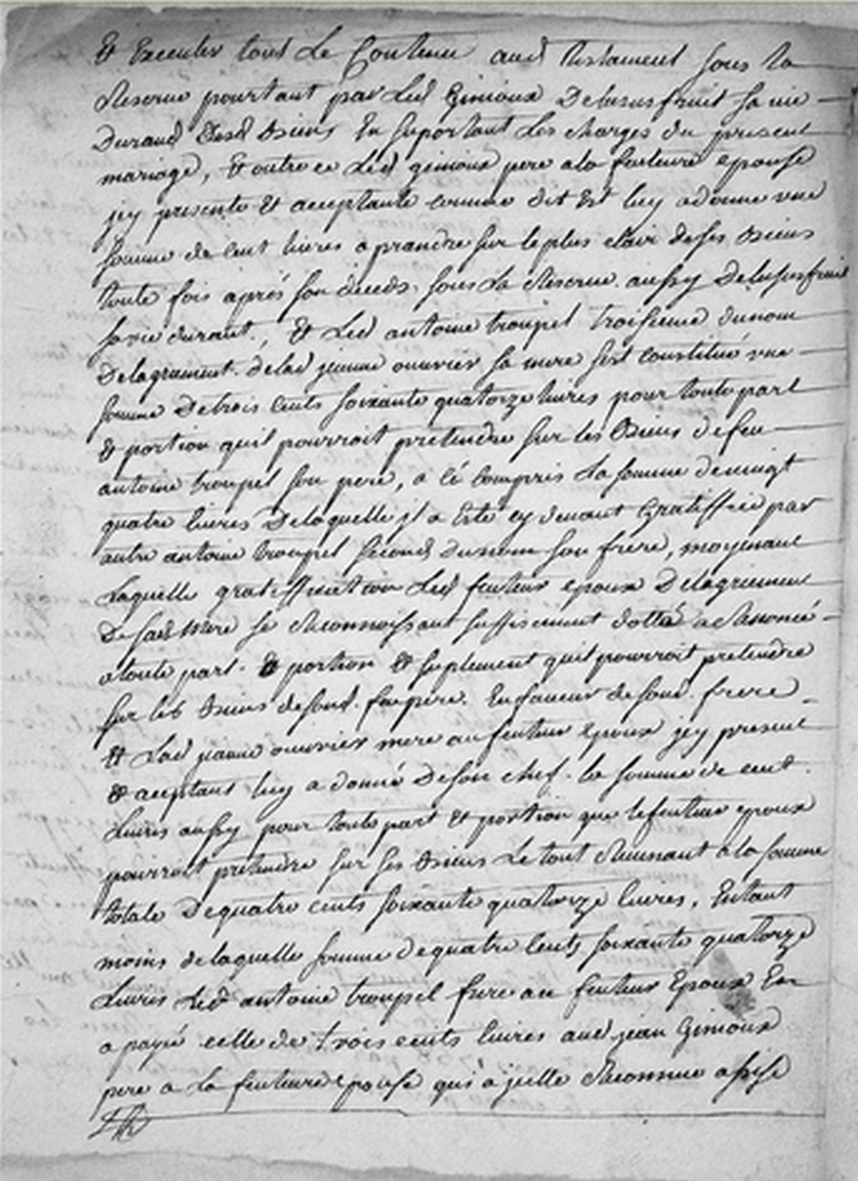 Et Executer tout Le Contenu aud testament sous la
Reserve pourtant par Led Gimioux Delusufruit sa vie
Durand Desd Biens En suportant Les charges du present
mariage, Et outre ce Led gimioux pere ala feuteure epouse
jcy presente Et aceptante comme dit Est luy adonne une
somme de cent livres a prandre sur le plus clair de ses Biens
toute fois aprés son deceds sous La Reserve aussy Delusufruit
sa vie durant, Et Led antoine troupel troisieme du nom
Delagrement delad jeanne ouvrier sa mere sest constitué une
somme Detrois cents soixante quatorze livres pour toute part
Et portion quil pourroit pretendre sur les Biens defeu
antoine troupel son pere, a cé compris La somme devingt
quatre livres Delaquelle jl a Esté cy devant Gratiffié par
autre antoine troupel second du nom son frere, moyenant
Laquelle gratiffication Led feuteur epoux Delagriement
De sad mere se Reconnoissant suffisement dotté a Renoncé
atoute part Et portion Et suplement quil pourroit pretendre
sur les Biens desond feu pere En faveur desond frere
Et Lad jeanne ouvrier mere au feuteur epoux jcy present
Et aceptant luy a donné De son chef la somme de cent
Livres aussy pour toute part Et portion que le feuteur epoux
pourroit pretendre sur ses Biens Le tout Revenant a la somme
totale Dequatre cents soixante quatorze livres, En tant
moins de laquelle somme Dequatre Cents soixante quatorze
Livres Led antoine troupel frere au feuteur Epoux En
a payé celle de trois cents livres aud jean Gimioux
pere a la feuteure epouse qui a jcelle Reconnue assise